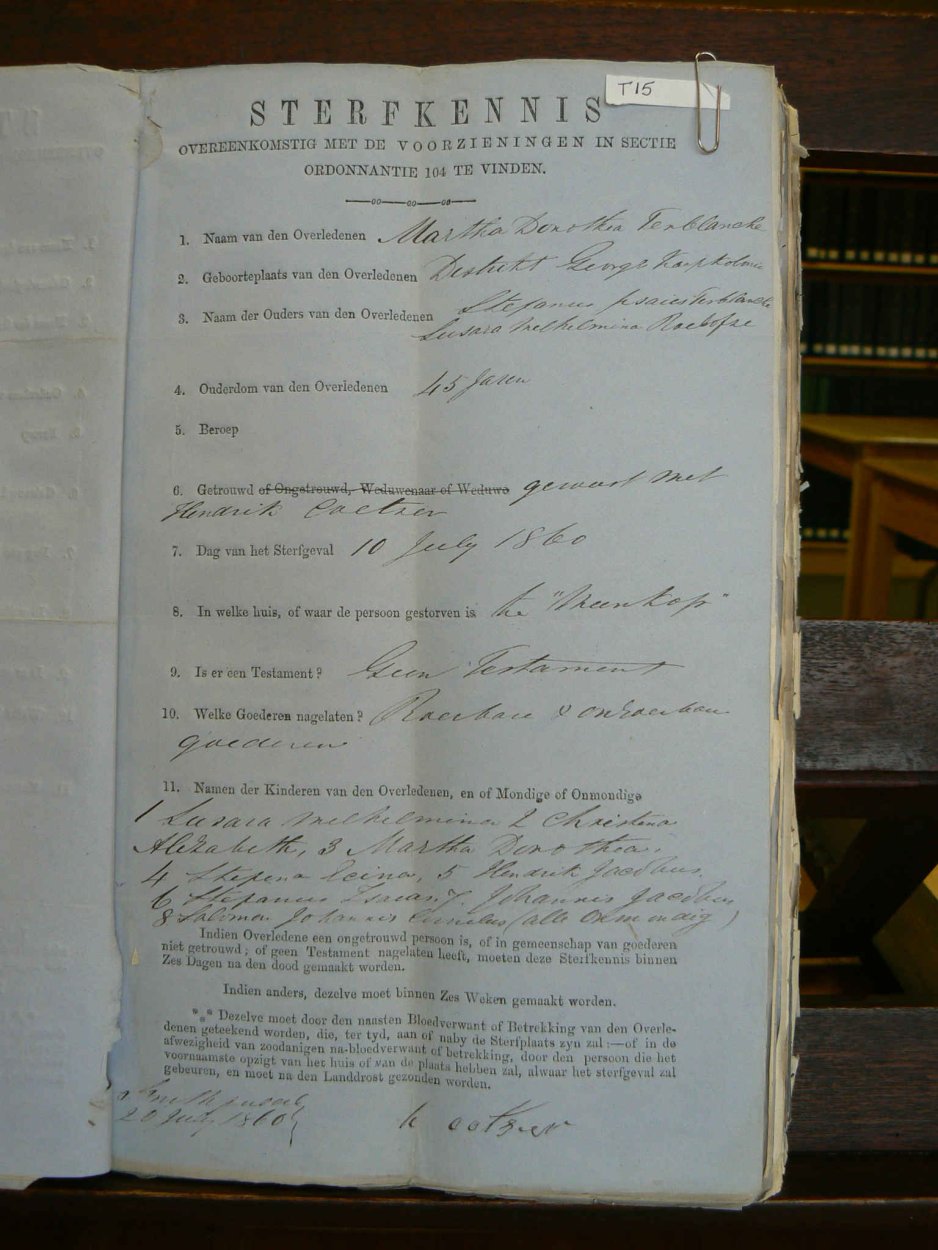 T15
STERFKENNIS
OVEREENKOMSTIG MET DE VOORZIENINGEN IN SECTIE
ORDONNANTIE 104 TE VINDEN.
1. Naam van den Overledenen Martha Dorothea Terblanche
2. Geboorteplaats van den Overledenen Distrikt George
Stefanus Terblanche
3. Naam der Ouders van den Overledenen
Susara Wilhelmina Roelofse
4. Ouderdom van den Overledenen 45 Jaren
5. Beroep
6. Getrouwd of Ongetrouwd, Weduwenaar of Weduwe geweest met
Hendrik Coetzer
7. Dag van het Sterfgeval 10 July 1860
8. In welke huis, of waar de persoon gestorven is te
9. Is er een Testament? Geen Testament
10. Welke Goederen nagelaten? Roerbare & onroerbare
goederen
11. Namen der Kinderen van den Overledenen, en of Mondige of Onmondige
1 Susara Wilhelmina 2 Christina
Elizabeth, 3 Martha Dorothea,
4 5 Hendrik Jacobus,
6 Stefanus 7. Johannis Jacobus
8 Salomon Johannis (alle onmondig)
Indien Overledene een ongetrouwd persoon is, of in gemeenschap van goederen
niet getrouwd; of geen Testament nagelaten heeft, moeten deze Sterfkennis binnen
Zes Dagen na den dood gemaakt worden.
Indien anders, dezelve moet binnen Zes Weken gemaakt worden.
*** Dezelve moet door den naasten Bloedverwant of Betrekking van den Overle-
denen geteekend worden, die, ter tyd, aan of naby de Sterfplaats zyn zal:—of in de
afwezigheid van zoodanigen na-bloedverwant of betrekking, door den persoon die het
voornaamste opzigt van het huis of van de plaats hebben zal, alwaar het sterfgeval zal
gebeuren, en moet na den Landdrost gezonden worden.
20 July 1860